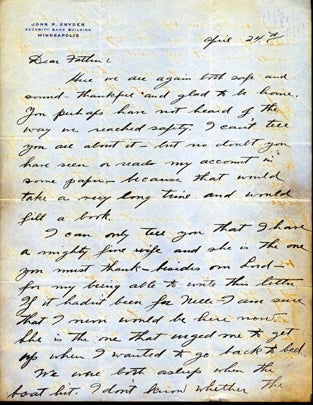 JOHN P. SNYDER
SECURITY BANK BUILDING
MINNEAPOLIS
April 24th
Dear Father:
Here we are again both safe and
sound - thankful and glad to be home.
You perhaps have not heard of the
way we reached safety. I can't tell
you all about it - but no doubt you
have seen or read my account in
some paper - because that would
take a very long time and would
fill a book.
I can only tell you that I have
a mighty fine wife and she is the one
you must thank - besides our Lord -
for my being able to write this letter.
If it hadn't been for Nelle I am sure
that I never would be here now.
She is the one that urged me to get
up when I wanted to go back to bed.
We were both asleep when the
boat hit. I don't know whether the